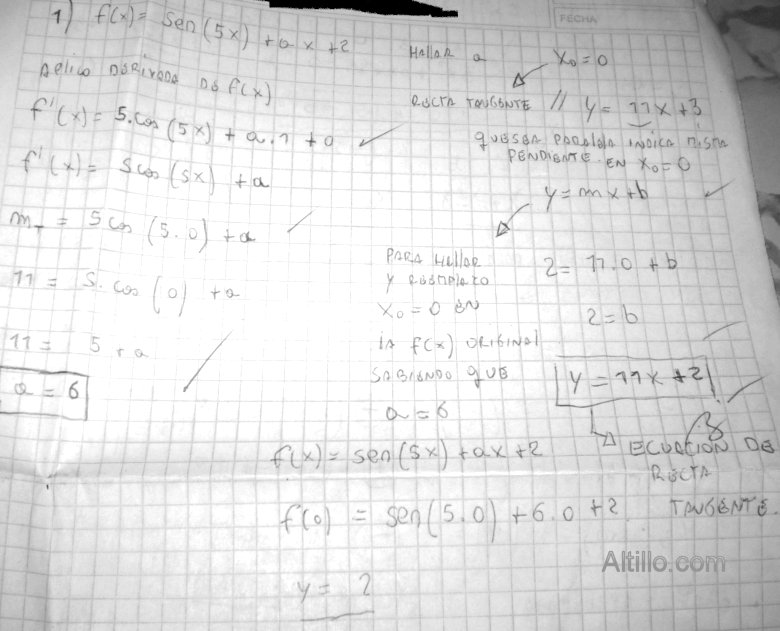 FECHA
1) f(x) = sen(5x) + ax + 2
HALLAR a
X₀ = 0
APLICO DERIVADA DE f(x)
RECTA TANGENTE // y = 11x + 3
f'(x) = 5.cos(5x) + a.1 + 0
QUE SEA PARALELA INDICA MISMA
PENDIENTE EN X₀ = 0
f'(x) = 5cos(5x) + a
y = mx + b
m_T = 5cos(5.0) + a
11 = 5.cos(0) + a
11 = 5 + a
a = 6
PARA HALLAR
Y REEMPLAZO
X₀ = 0 EN
LA f(x) ORIGINAL
SABIENDO QUE
a = 6
2 = 11.0 + b
2 = b
y = 11x + 2
ECUACION DE
RECTA
TANGENTE.
f(x) = sen(5x) + ax + 2
f(0) = sen(5.0) + 6.0 + 2
y = 2
Altillo.com